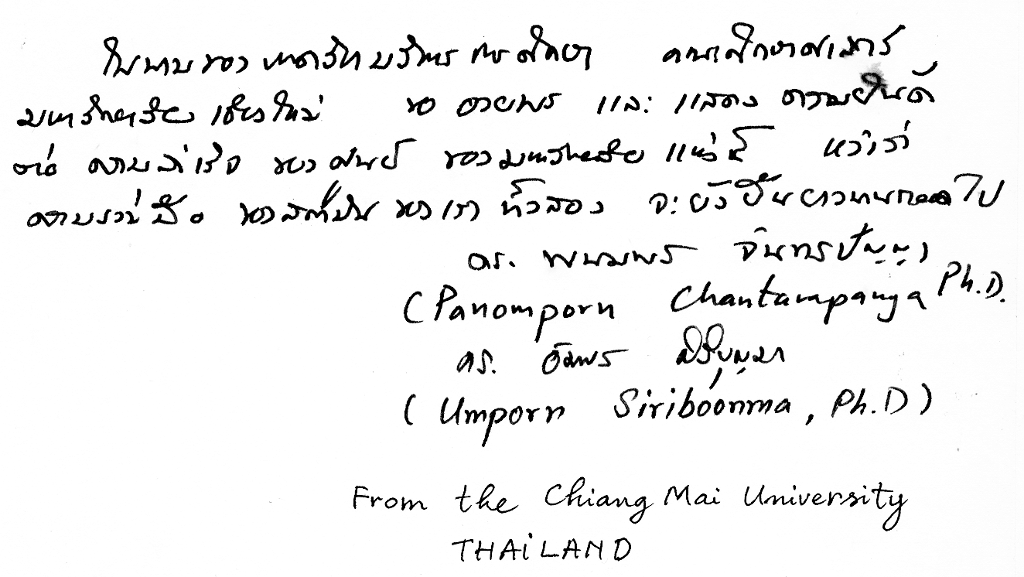 ในนามของภาควิชาบริหารการศึกษา คณะศึกษาศาสตร์
มหาวิทยาลัยเชียงใหม่ ขออวยพร และ แสดง ความยินดี
ต่อ ความสำเร็จ ของศูนย์ ของมหาวิทยาลัย แห่งนี้ หวังว่า
ความร่วมมือ ของสถาบัน ของเรา ทั้งสอง จะยั่งยืนยาวนานตลอดไป
ดร. พนมพร จันทรปัญญา
(Panomporn Chantarapanya Ph.D.
ดร. อัมพร ศิริบุญมา
(Umporn Siriboonma, Ph.D)
From the Chiang Mai University
THAILAND